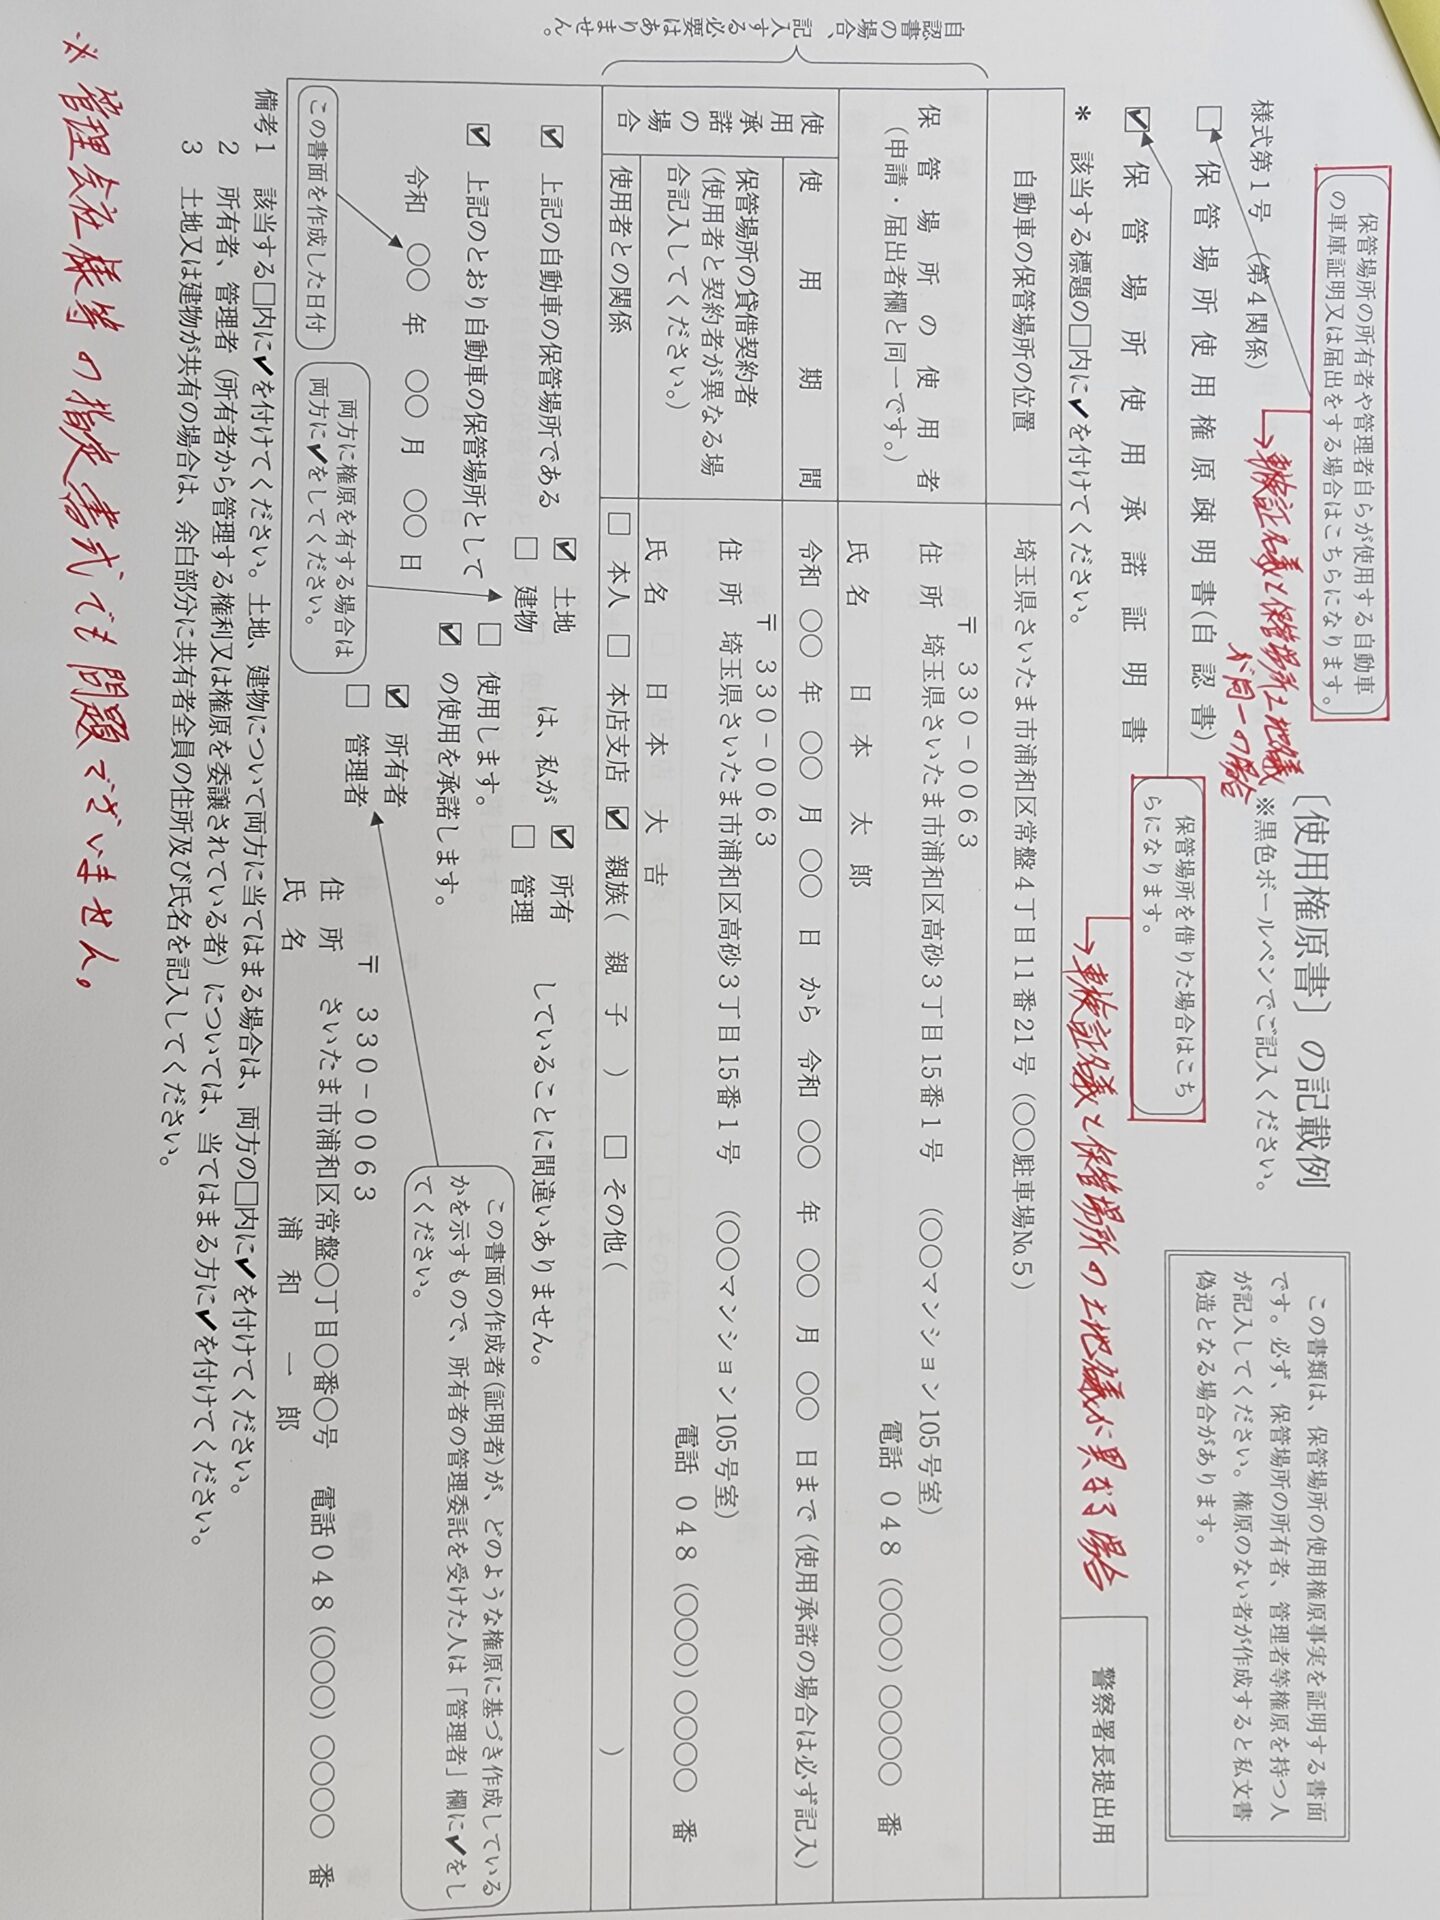 〔使用権原書〕の記載例
※黒色ボールペンでご記入ください。
この書類は、保管場所の使用権原事実を証明する書面
です。必ず、保管場所の所有者、管理者等権原を持つ人
が記入してください。権原のない者が作成すると私文書
偽造となる場合があります。
保管場所の所有者や管理者自らが使用する自動車
の車庫証明又は届出をする場合はこちらになります。
様式第1号 (第4関係)
→車検証名義と保管場所土地名義
が同一の場合
□ 保管場所使用権原疎明書(自認書)
保管場所を借りた場合はこち
らになります。
☑ 保管場所使用承諾証明書
→車検証名義と保管場所の土地名義が異なる場合
* 該当する標題の□内に✔を付けてください。
警察署長提出用
自動車の保管場所の位置
埼玉県さいたま市浦和区常盤4丁目11番21号(○○駐車場№5)
保管場所の使用者
(申請・届出者欄と同一です。)
〒 330-0063
住 所 埼玉県さいたま市浦和区高砂3丁目15番1号 (○○マンション105号室)
電話 048 (○○○) ○○○○ 番
氏 名 日 本 太 郎
自認書の場合、記入する必要はありません。
使用承諾の場合
使用期間
令和 ○○ 年 ○○ 月 ○○ 日 から 令和 ○○ 年 ○○ 月 ○○ 日まで(使用承諾の場合は必ず記入)
保管場所の貸借契約者
(使用者と契約者が異なる場
合記入してください。)
〒 330-0063
住 所 埼玉県さいたま市浦和区高砂3丁目15番1号 (○○マンション105号室)
電話 048 (○○○) ○○○○ 番
氏 名 日 本 大 吉
使用者との関係
□ 本人 □ 本店支店 ☑ 親族( 親 子 ) □ その他( )
☑ 上記の自動車の保管場所である ☑ 土地 □ 建物 は、私が ☑ 所有 □ 管理 していることに間違いありません。
☑ 上記のとおり自動車の保管場所として □ 使用します。
☑ の使用を承諾します。
令和 ○○ 年 ○○ 月 ○○ 日
この書面を作成した日付
両方に権原を有する場合は
両方に✔をしてください。
この書面の作成者(証明者)が、どのような権原に基づき作成している
かを示すもので、所有者の管理委託を受けた人は「管理者」欄に✔をし
てください。
☑ 所有者
□ 管理者
〒 330-0063
住 所 さいたま市浦和区常盤○丁目○番○号 電話048 (○○○) ○○○○ 番
氏 名 浦 和 一 郎
備考1 該当する□内に✔を付けてください。土地、建物について両方に当てはまる場合は、両方の□内に✔を付けてください。
2 所有者、管理者(所有者から管理する権利又は権原を委譲されている者)については、当てはまる方に✔を付けてください。
3 土地又は建物が共有の場合は、余白部分に共有者全員の住所及び氏名を記入してください。
※ 管理会社様等の指定書式でも問題ございません。